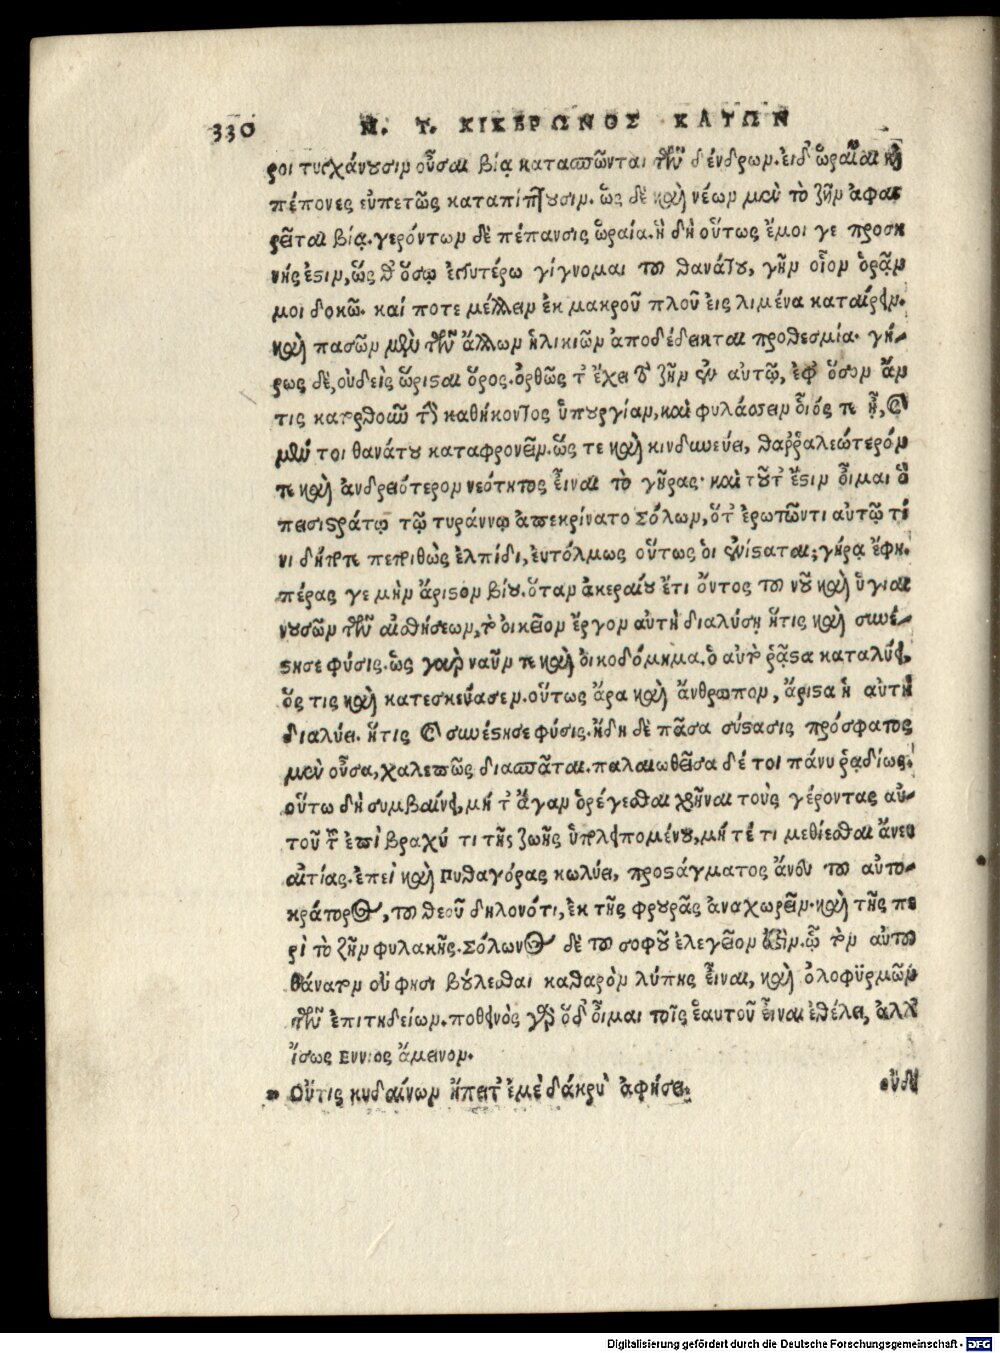 330 Μ. Τ. ΚΙΚΕΡΩΝΟΣ ΚΑΤΩΝ
ροι τυγχάνουσιν οὖσαι βίᾳ κατασπῶνται τῶν δένδρων. εἰ δ' ὡραῖαι καὶ
πέπονες εὐπετῶς καταπίπτουσιν. ὣς δὲ καὶ νέων μὲν τὸ ζῆν ἀφαι
ρεῖται βίᾳ. γερόντων δὲ πέπανσις ὡραία. ἣ δὴ οὕτως ἔμοι γε προση
νής ἐστιν, ὥς θ' ὅσῳ ἐγγυτέρω γίγνομαι τοῦ θανάτου, γῆν οἷον ὁρᾶν
μοι δοκῶ. καί ποτε μέλλειν ἐκ μακροῦ πλοῦ εἰς λιμένα καταίρειν.
καὶ πασῶν μὲν τῶν ἄλλων ἡλικιῶν ἀποδέδεικται προθεσμία. γή-
ρως δὲ, οὐδεὶς ὥρισται ὅρος. ὀρθῶς τ' ἔχει τὸ ζῆν ἐν αὐτῷ, ἐφ' ὅσον ἄν
τις κατορθοῖ τὴν καθήκοντος ὑπουργίαν, καὶ φυλάσσειν οἷός τε ᾖ, καὶ
μέν τοι θανάτου καταφρονεῖν. ὥς τε καὶ κινδυνεύει, θαῤῥαλεώτερόν
τε καὶ ἀνδρειότερον νεότητος εἶναι τὸ γῆρας. καὶ τοῦτ' ἔστιν οἶμαι ὃ
πεισιστράτῳ τῷ τυράννῳ ἀπεκρίνατο Σόλων, ὅτ' ἐρωτῶντι αὐτῷ τί
νι δήποτε πεποιθὼς ἐλπίδι, εὐτόλμως οὕτως οἱ ἐνίσταται; γήρᾳ ἔφη.
πέρας γε μὴν ἄριστον βίου. ὅταν ἀκεραίου ἔτι ὄντος τοῦ νοῦ καὶ ὑγιαι
νουσῶν τῶν αἰσθήσεων, τὸ οἰκεῖον ἔργον αὐτὴ διαλύσῃ ἥτις καὶ συνέ-
στησε φύσις. ὡς γὰρ ναῦν τε καὶ οἰκοδόμημα. ὁ αὐτὸς ῥᾷστα καταλύει,
ὅς τις καὶ κατεσκεύασεν. οὕτως ἄρα καὶ ἄνθρωπον, ἄριστα ἡ αὐτὴ
διαλύει. ἥτις καὶ συνέστησε φύσις. ἤδη δὲ πᾶσα σύστασις πρόσφατος
μὲν οὖσα, χαλεπῶς διασπᾶται. παλαιωθεῖσα δέ τοι πάνυ ῥᾳδίως.
οὕτω δὴ συμβαίνει, μή τ' ἄγαν ὀρέγεσθαι χρῆναι τοὺς γέροντας αὐ-
τοῦ τοῦ ἐπὶ βραχύ τι τῆς ζωῆς ὑπολειπομένου, μή τέ τι μεθίεσθαι ἄνευ
αἰτίας. ἐπεὶ καὶ Πυθαγόρας κωλύει, προστάγματος ἄνευ τοῦ αὐτο-
κράτορος, τοῦ θεοῦ δηλονότι, ἐκ τῆς φρουρᾶς ἀναχωρεῖν. καὶ τῆς πε
ρὶ τὸ ζῆν φυλακῆς. Σόλωνος δὲ τοῦ σοφοῦ ἐλεγεῖον ἐστιν. ᾧ τὸν αὐτοῦ
θάνατον οὔ φησι βούλεσθαι καθαρὸν λύπης εἶναι, καὶ ὀλοφυρμῶν
τῶν ἐπιτηδείων. ποθεινὸς γὰρ ὅδ' οἶμαι τοῖς ἑαυτοῦ εἶναι ἐθέλει, ἀλλ'
ἴσως Εννιος ἄμεινον.
" Οὔτις κυδαίνων ἤπειτ' ἐμὲ δάκρυ' ἀφήσει.
οὐδὲ
Digitalisierung gefördert durch die Deutsche Forschungsgemeinschaft - DFG